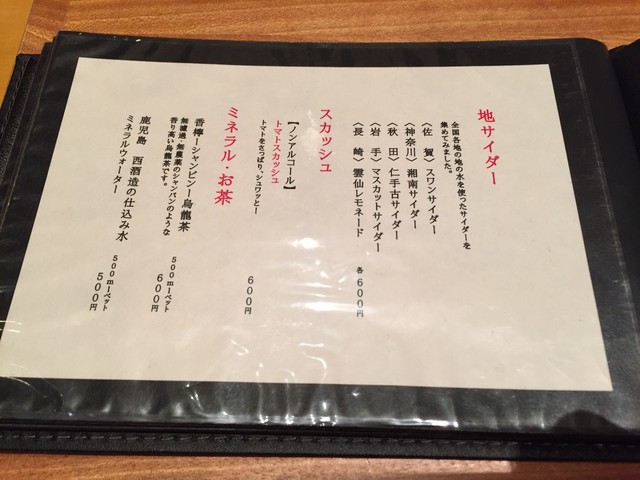 地サイダー
全国各地の地の水を使ったサイダーを
集めてみました。
〈佐 賀〉スワンサイダー
〈神奈川〉湘南サイダー
〈秋 田〉仁手古サイダー
〈岩 手〉マスカットサイダー
〈長 崎〉雲仙レモネード
各 600円
スカッシュ
【ノンアルコール】
トマトスカッシュ
トマトをさっぱり、シュワッとー
600円
ミネラル・お茶
香檸ーシャンピンー烏龍茶
無濾過・無農薬のシャンパンのような
香り高い烏龍茶です。
500mlペット
600円
鹿児島 西酒造の仕込み水
ミネラルウォーター
500mlペット
500円